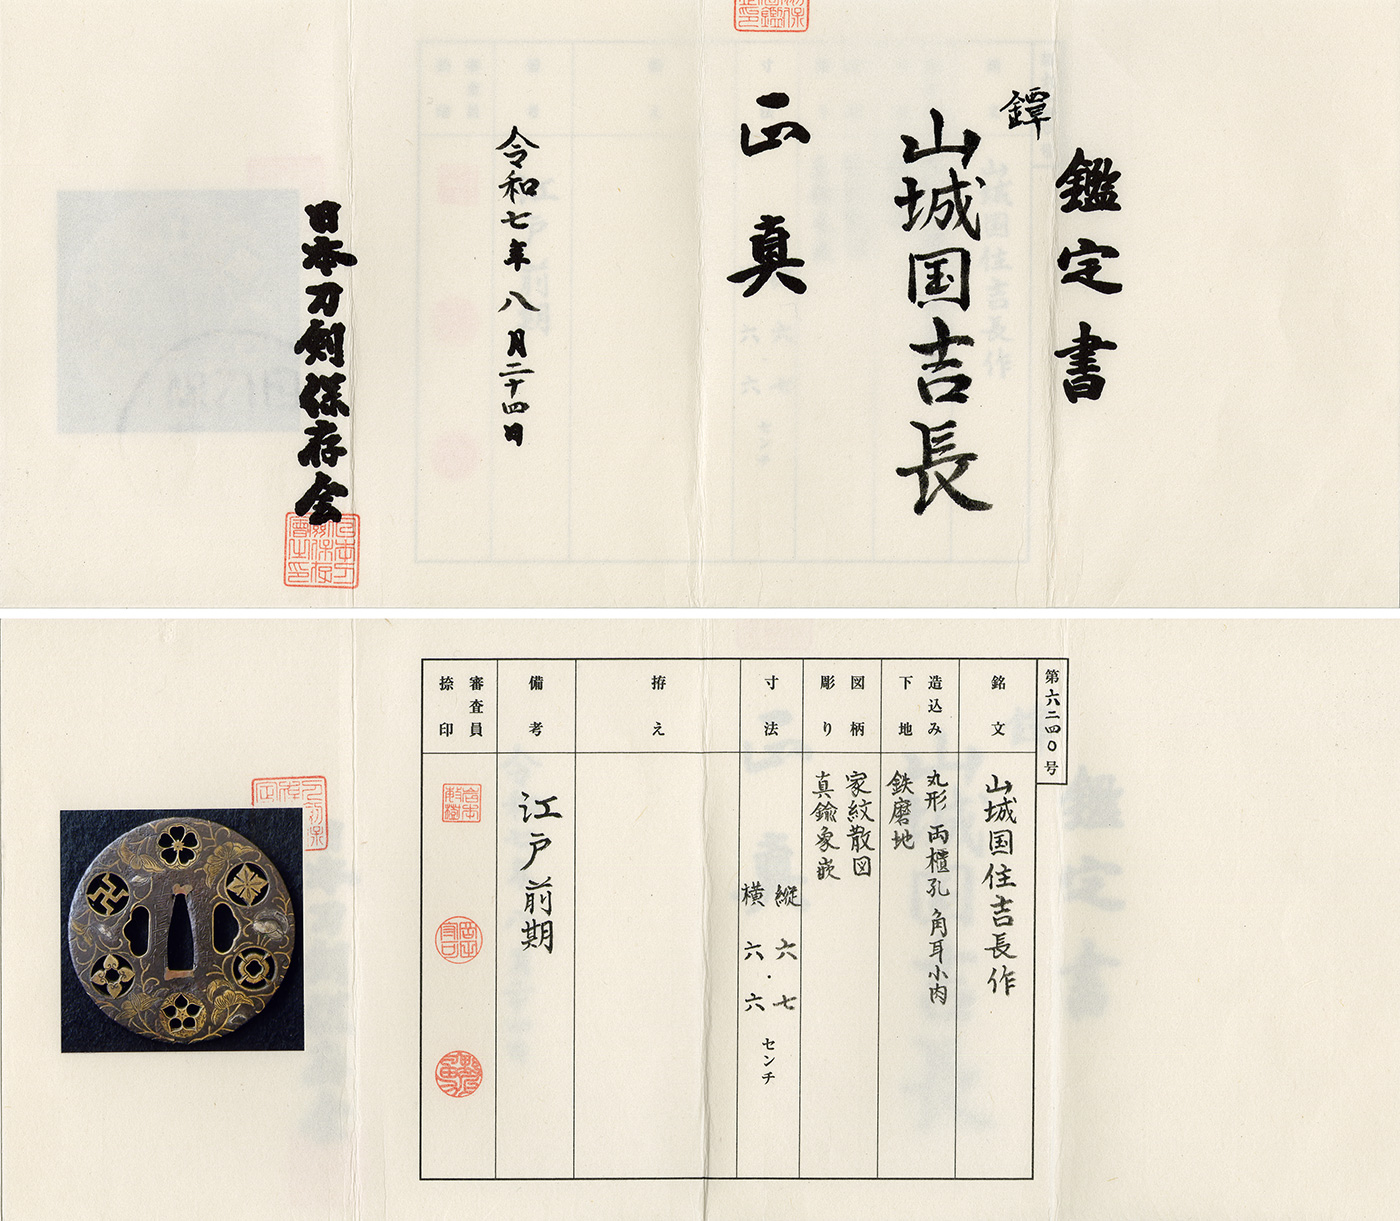 鑑定書
鐔
山城国吉長
正真
令和七年八月二十四日
日本刀剣保存会
第六二四〇号
銘文
山城国住吉長作
造込み
下地
丸形 両櫃孔 角耳小肉
鉄磨地
図柄
彫り
家紋散図
真鍮象嵌
寸法
縦 六・七
横 六・六
センチ
拵え
備考
江戸前期
審査員
捺印